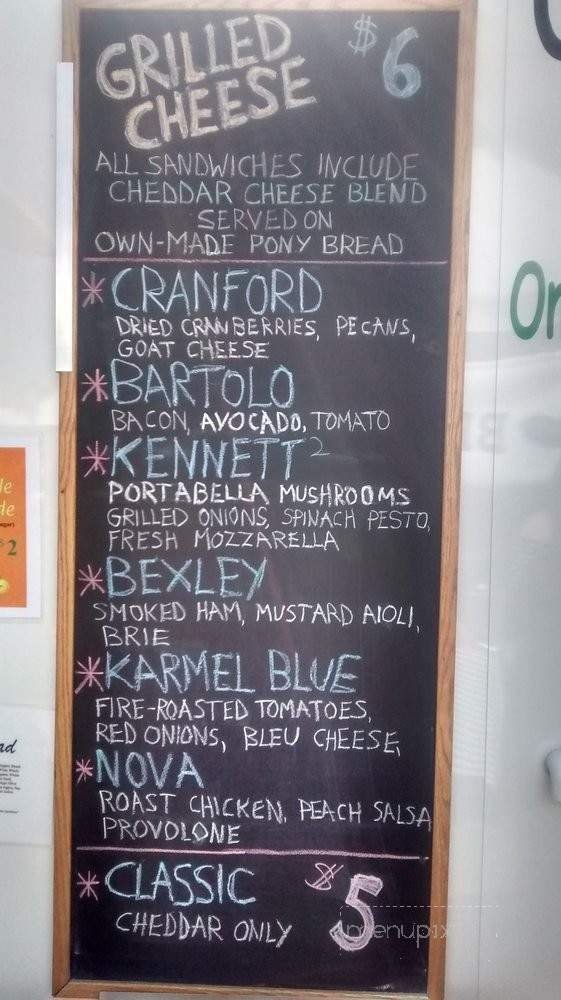 GRILLED
CHEESE
$6
ALL SANDWICHES INCLUDE
CHEDDAR CHEESE BLEND
SERVED ON
OWN-MADE PONY BREAD
* CRANFORD
DRIED CRANBERRIES, PECANS,
GOAT CHEESE
* BARTOLO
BACON, AVOCADO, TOMATO
* KENNETT²
PORTABELLA MUSHROOMS
GRILLED ONIONS, SPINACH PESTO,
FRESH MOZZARELLA
* BEXLEY
SMOKED HAM, MUSTARD AIOLI,
BRIE
* KARMEL BLUE
FIRE-ROASTED TOMATOES,
RED ONIONS, BLEU CHEESE,
* NOVA
ROAST CHICKEN, PEACH SALSA
PROVOLONE
* CLASSIC $5
CHEDDAR ONLY
menupix
Or
$2